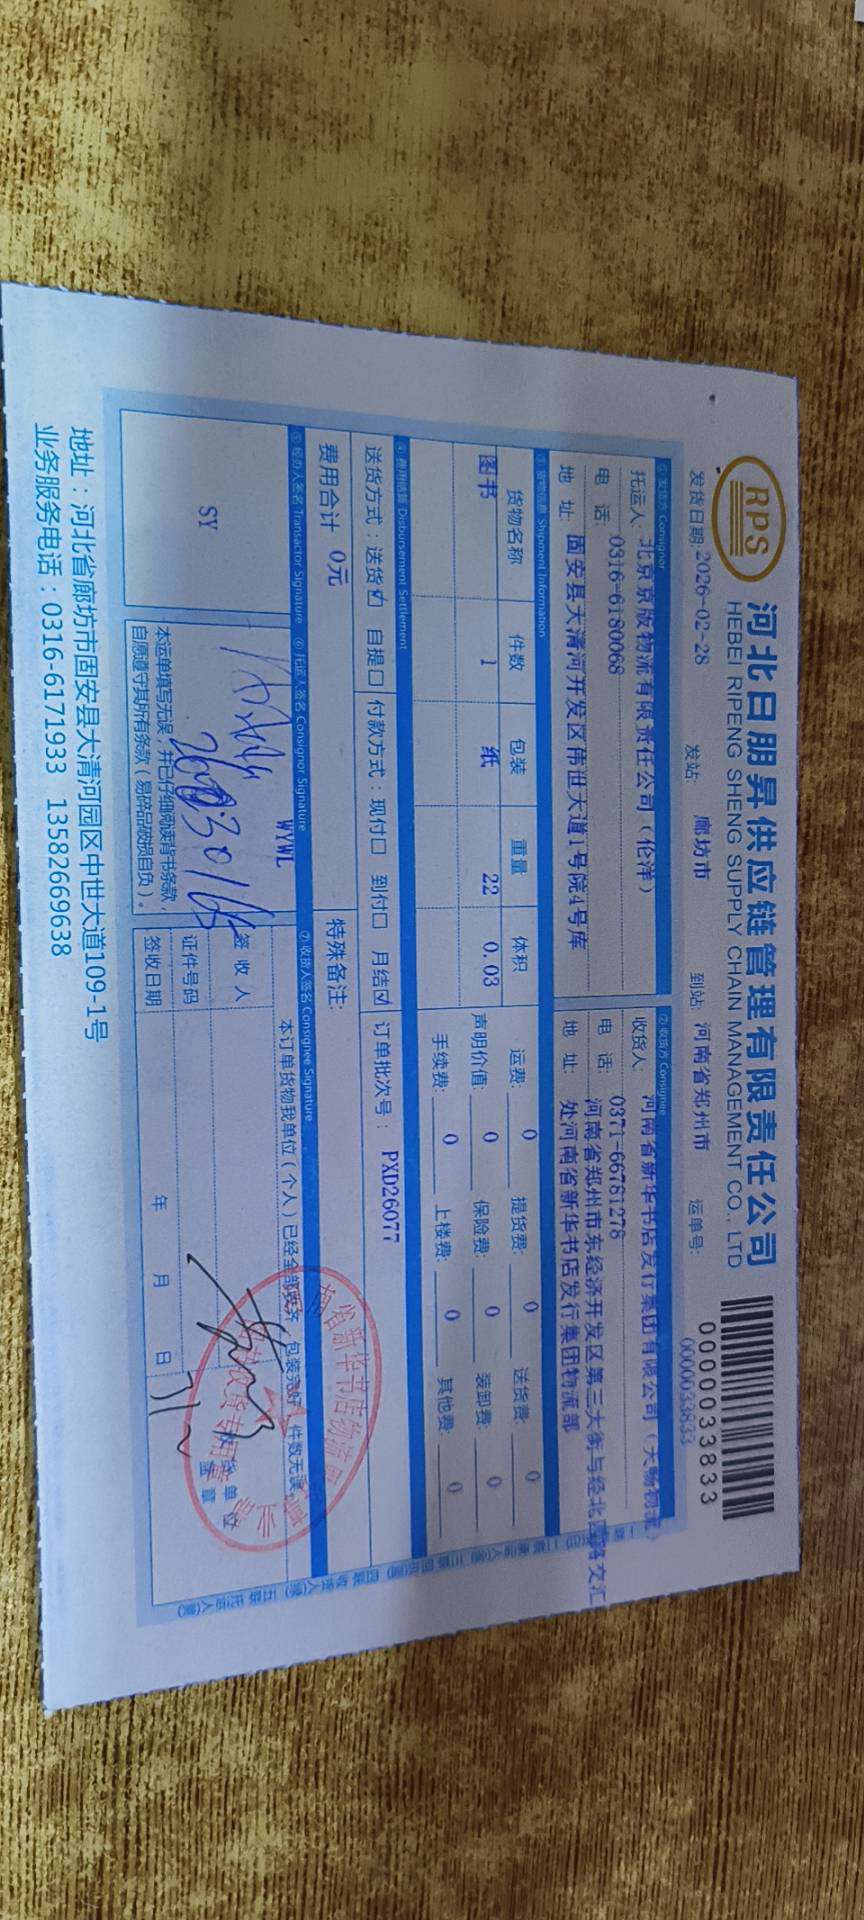 RPS
河北日朋昇供应链管理有限责任公司
HEBEI RIPENG SHENG SUPPLY CHAIN MANAGEMENT CO., LTD
0000033833
发货日期: 2026-02-28 发站: 廊坊市 到站: 河南省郑州市 运单号: 0000033833
① 发货方 Consignor ② 收货方 Consignee
托运人: 北京京版物流有限责任公司（伦洋） 收货人: 河南省新华书店发行集团有限公司（大畅物流）
电 话: 0316-6180068 电 话: 0371-66781278
地 址: 固安县大清河开发区伟世大道1号院4号库 地 址: 河南省郑州市东经济开发区第三大街与经北四路交汇
处河南省新华书店发行集团物流部
③ 货物信息 Shipment Information
货物名称 件数 包装 重量 体积 运费: 0 提货费: 0 送货费: 0
图书 1 纸 22 0.03 声明价值: 0 保险费: 0 装卸费: 0
手续费: 0 上楼费: 0 其他费: 0
④ 费用结算 Disbursement Settlement
送货方式：送货☑ 自提□ 付款方式：现付□ 到付□ 月结☑ 订单批次号： PXD26077
费用合计 0元 特殊备注:
⑤ 经办人签名 Transactor Signature ⑥ 托运人签名 Consignor Signature ⑦ 收货人签名 Consignee Signature
WYWL
SY
本订单货物我单位（个人）已经全部收齐，包装完好，件数无误。
签 收 人
证件号码
签收日期 年 月 日
收货单位
盖章
本运单填写无误，并已仔细阅读背书条款，
自愿遵守其所有条款（易碎品破损自负）。
地址：河北省廊坊市固安县大清河园区中世大道109-1号
业务服务电话：0316-6171933 13582669638